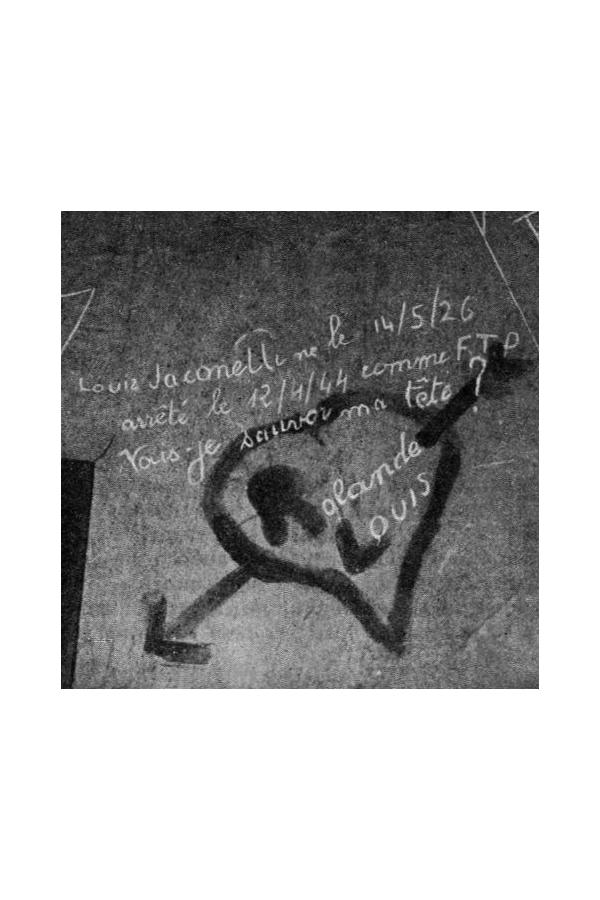 Louis Jaconelli né le 14/5/26
arrêté le 12/4/44 comme F.T.P
Vais-je sauver ma tête ?
Rolande
LOUIS